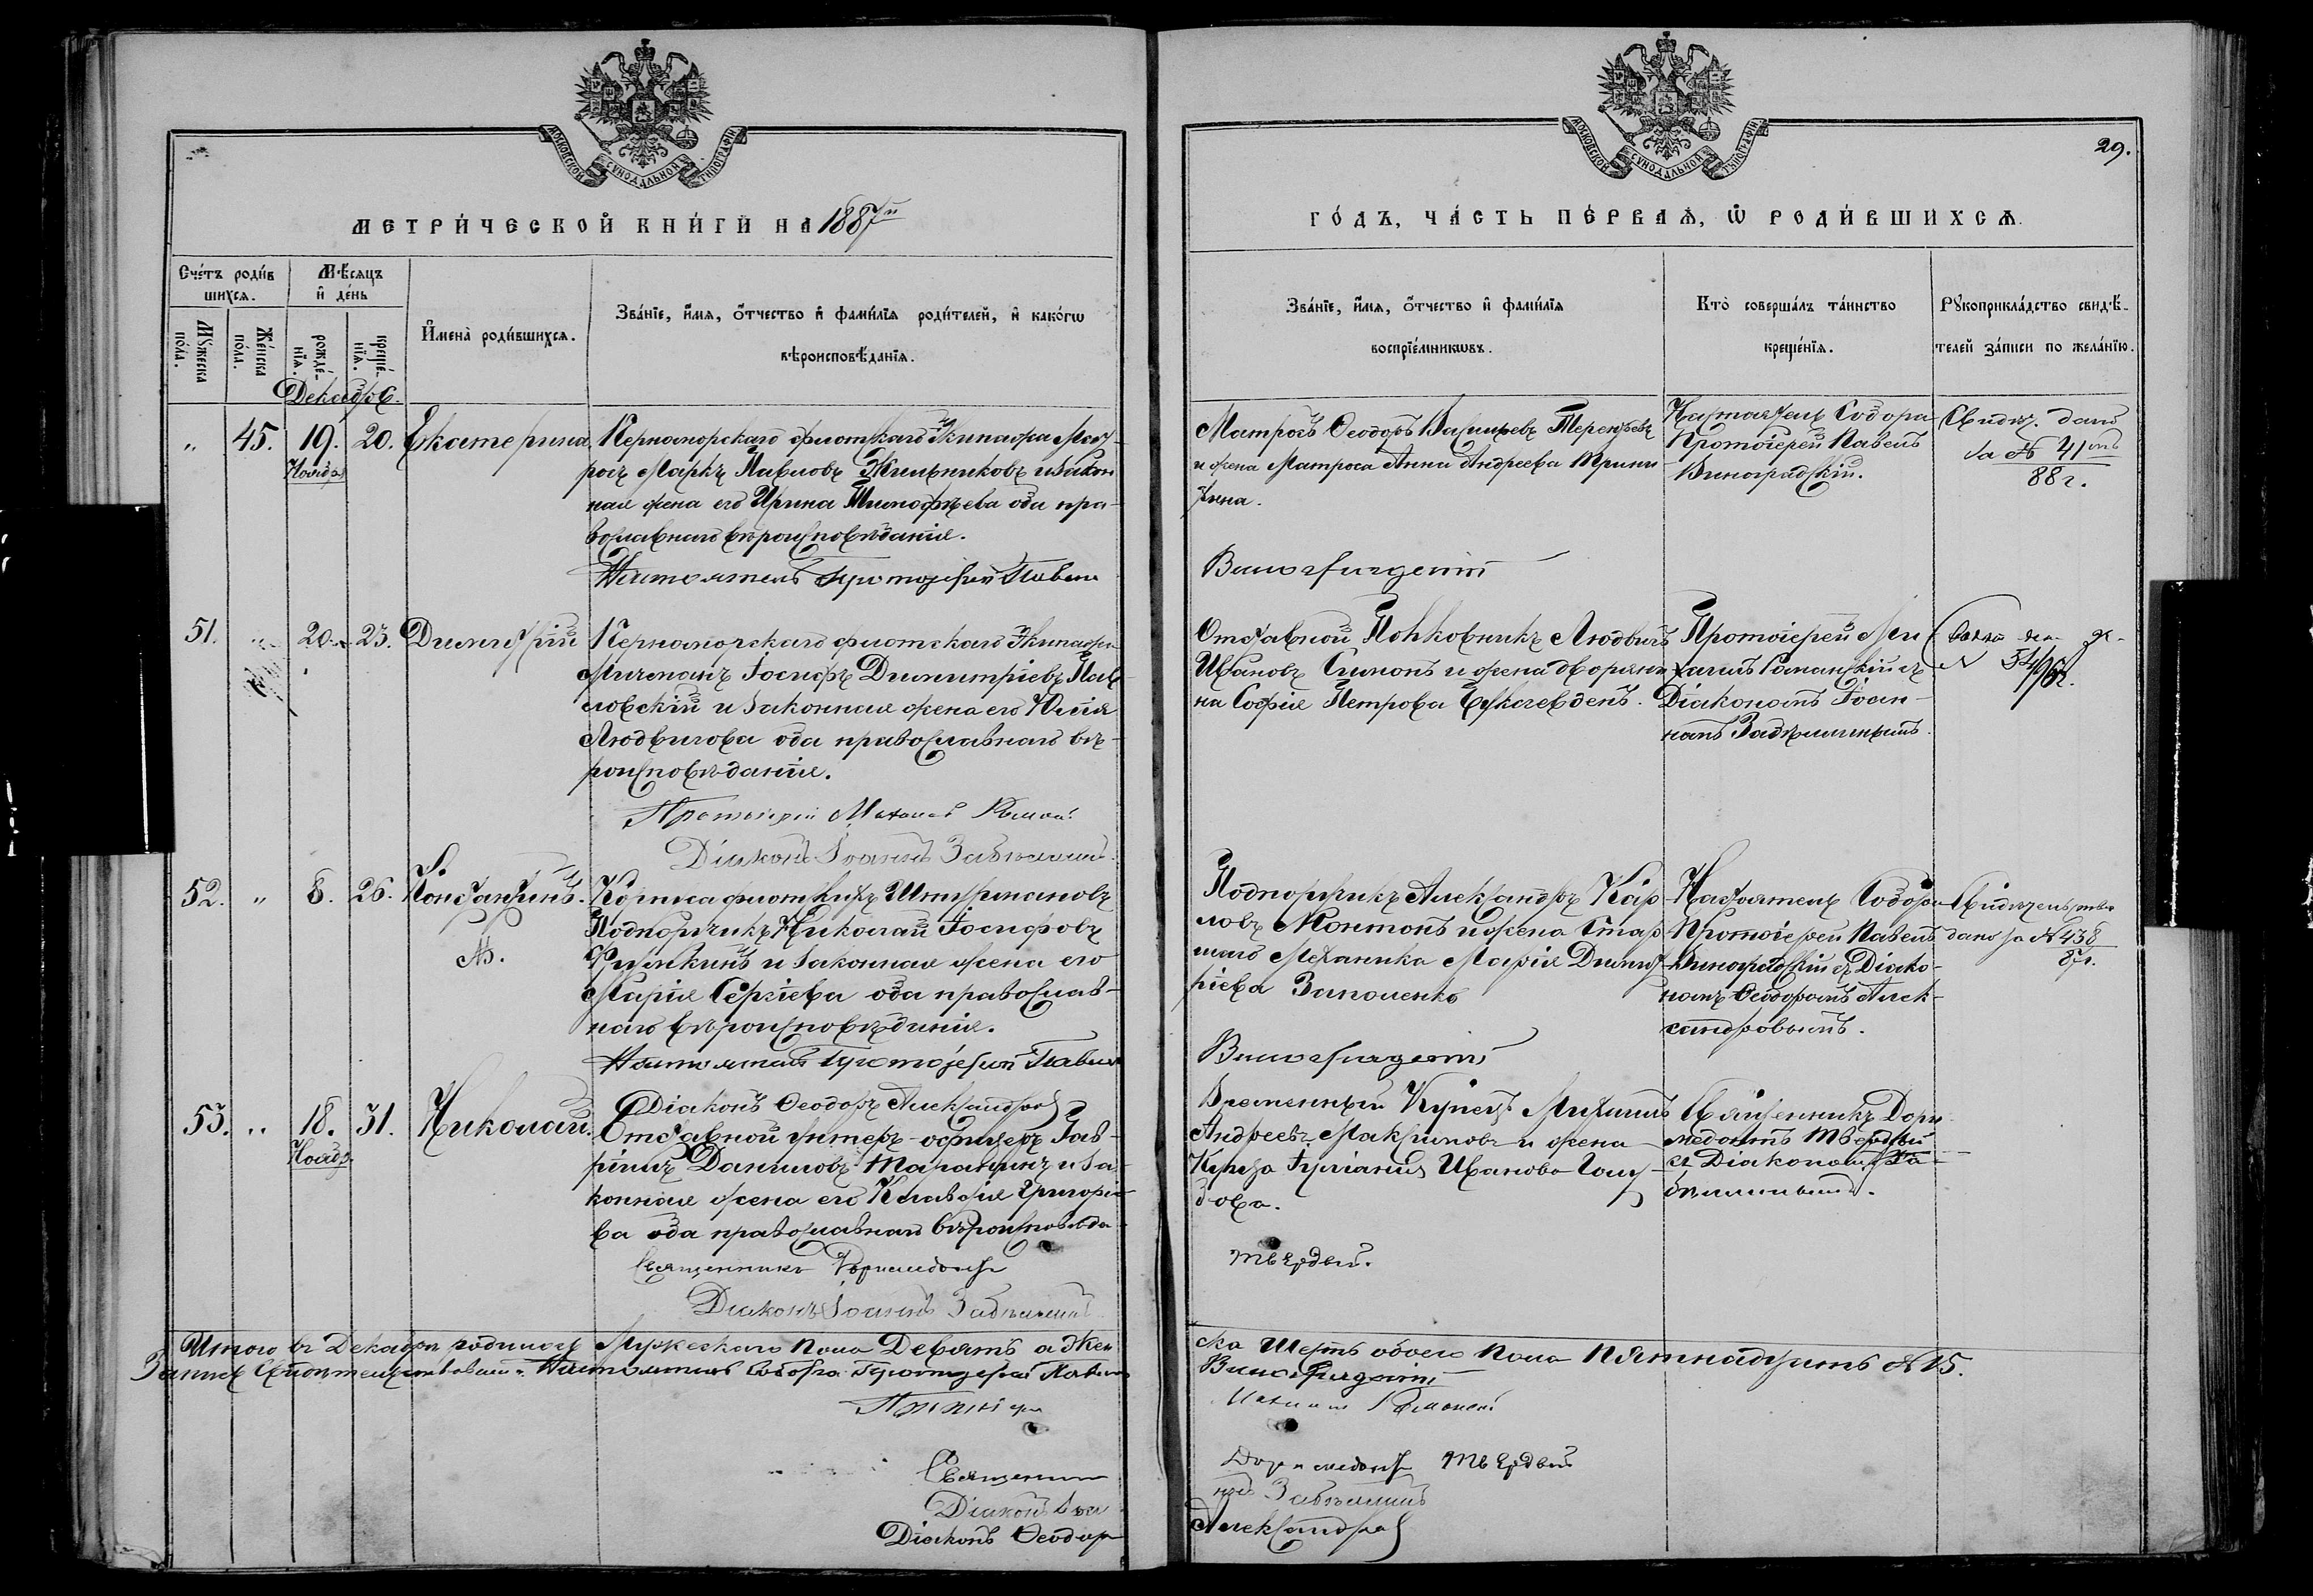 МОСКОВСКОЙ СУНОДАЛЬНОЙ ТИПОГРАФІИ
МЕТРИЧЕСКОЙ КНИГИ НА 1887й
Счетъ родив
шихся.
Мѣсяцъ
и день
Мужеска
пола.
Женска
пола.
рожде-
нія.
креще-
нія.
Имена родившихся.
Званіе, имя, отчество и фамилія родителей, и какого
вѣроисповѣданія.
Декабрь.
„ 45. 19. 20. Екатерина
Ноябр.
Черноморскаго флотскаго Экипажа Мат-
росъ Маркъ Павловъ Жильниковъ и закон
ная жена его Ирина Тимофѣева оба пра-
вославнаго вѣроисповѣданія.
Настоятель Протоіерей Павелъ
51. „ 20. 23. Димитрій
Черноморскаго флотскаго Экипажа
Мичманъ Іосифъ Димитріевъ Пав-
ловскій и законная жена его Юлія
Людвигова оба православнаго вѣ-
роисповѣданія.
Протоіерей Михаилъ
Діаконъ Іоаннъ
52. „ 8. 26. Константинъ.
Корпуса флотскихъ Штурмановъ
Подпоручикъ Николай Іосифовъ
и законная жена его
Марія Сергіева оба православ-
наго вѣроисповѣданія.
Настоятель Протоіерей Павелъ
Діаконъ Ѳеодоръ Александров
53. „ 18. 31. Николай.
Ноябр.
Отставной унтеръ-офицеръ Гав-
ріилъ Даниловъ Таранухинъ и за-
конная жена его Клавдія Григорье-
ва оба православнаго вѣроисповѣда
Священникъ Доримедонтъ
Діаконъ Іоаннъ
Итого въ Декабрѣ родилось Мужескаго пола Девять а Жен
Запись свидѣтельствовали: Настоятель Собора Протоіерей Павелъ
Протоіерей
Священни
Діаконъ Іоа
Діаконъ Ѳеодоръ
29.
МОСКОВСКОЙ СУНОДАЛЬНОЙ ТИПОГРАФІИ
ГОДЪ, ЧАСТЬ ПЕРВАЯ, Ѡ РОДИВШИХСЯ.
Званіе, имя, отчество и фамилія
воспріемниковъ.
Кто совершалъ таинство
крещенія.
Рукоприкладство свидѣ-
телей записи по желанію.
Матросъ Ѳеодоръ Васильевъ Терентьевъ
и жена Матроса Анна Андреева
Настоятель Собора
Протоіерей Павелъ
Виноградскій.
Свидѣт. дано
за № 41
88 г.
Виноградскій
Отставной Полковникъ Людвигъ
Ивановъ Симонъ и жена дворяни
на Софія Петрова
Протоіерей Ми
хаилъ Романскій съ
Діакономъ Іоан-
номъ
№ 54
Подпоручикъ Александръ Кар
ловъ Монтонъ и жена Стар
шаго Механика Марія Димит-
ріева Заполенко
Настоятель Собора
Протоіерей Павелъ
Виноградскій съ Діако-
номъ Ѳеодоромъ Алек-
сандровымъ.
Свидѣтельство
дано за № 438
87 г.
Виноградскій
Временный Купецъ Михаилъ
Андреевъ Максимовъ и жена
Купца Іуліанія Иванова Голу-
бова.
Священникъ Дори
медонтъ Твердый
съ Діакономъ
Твердый.
ска Шесть обоего пола пятнадцать № 15.
Виноградскій
Михаилъ Романскій
Доримедонтъ Твердый
ннъ
Александров